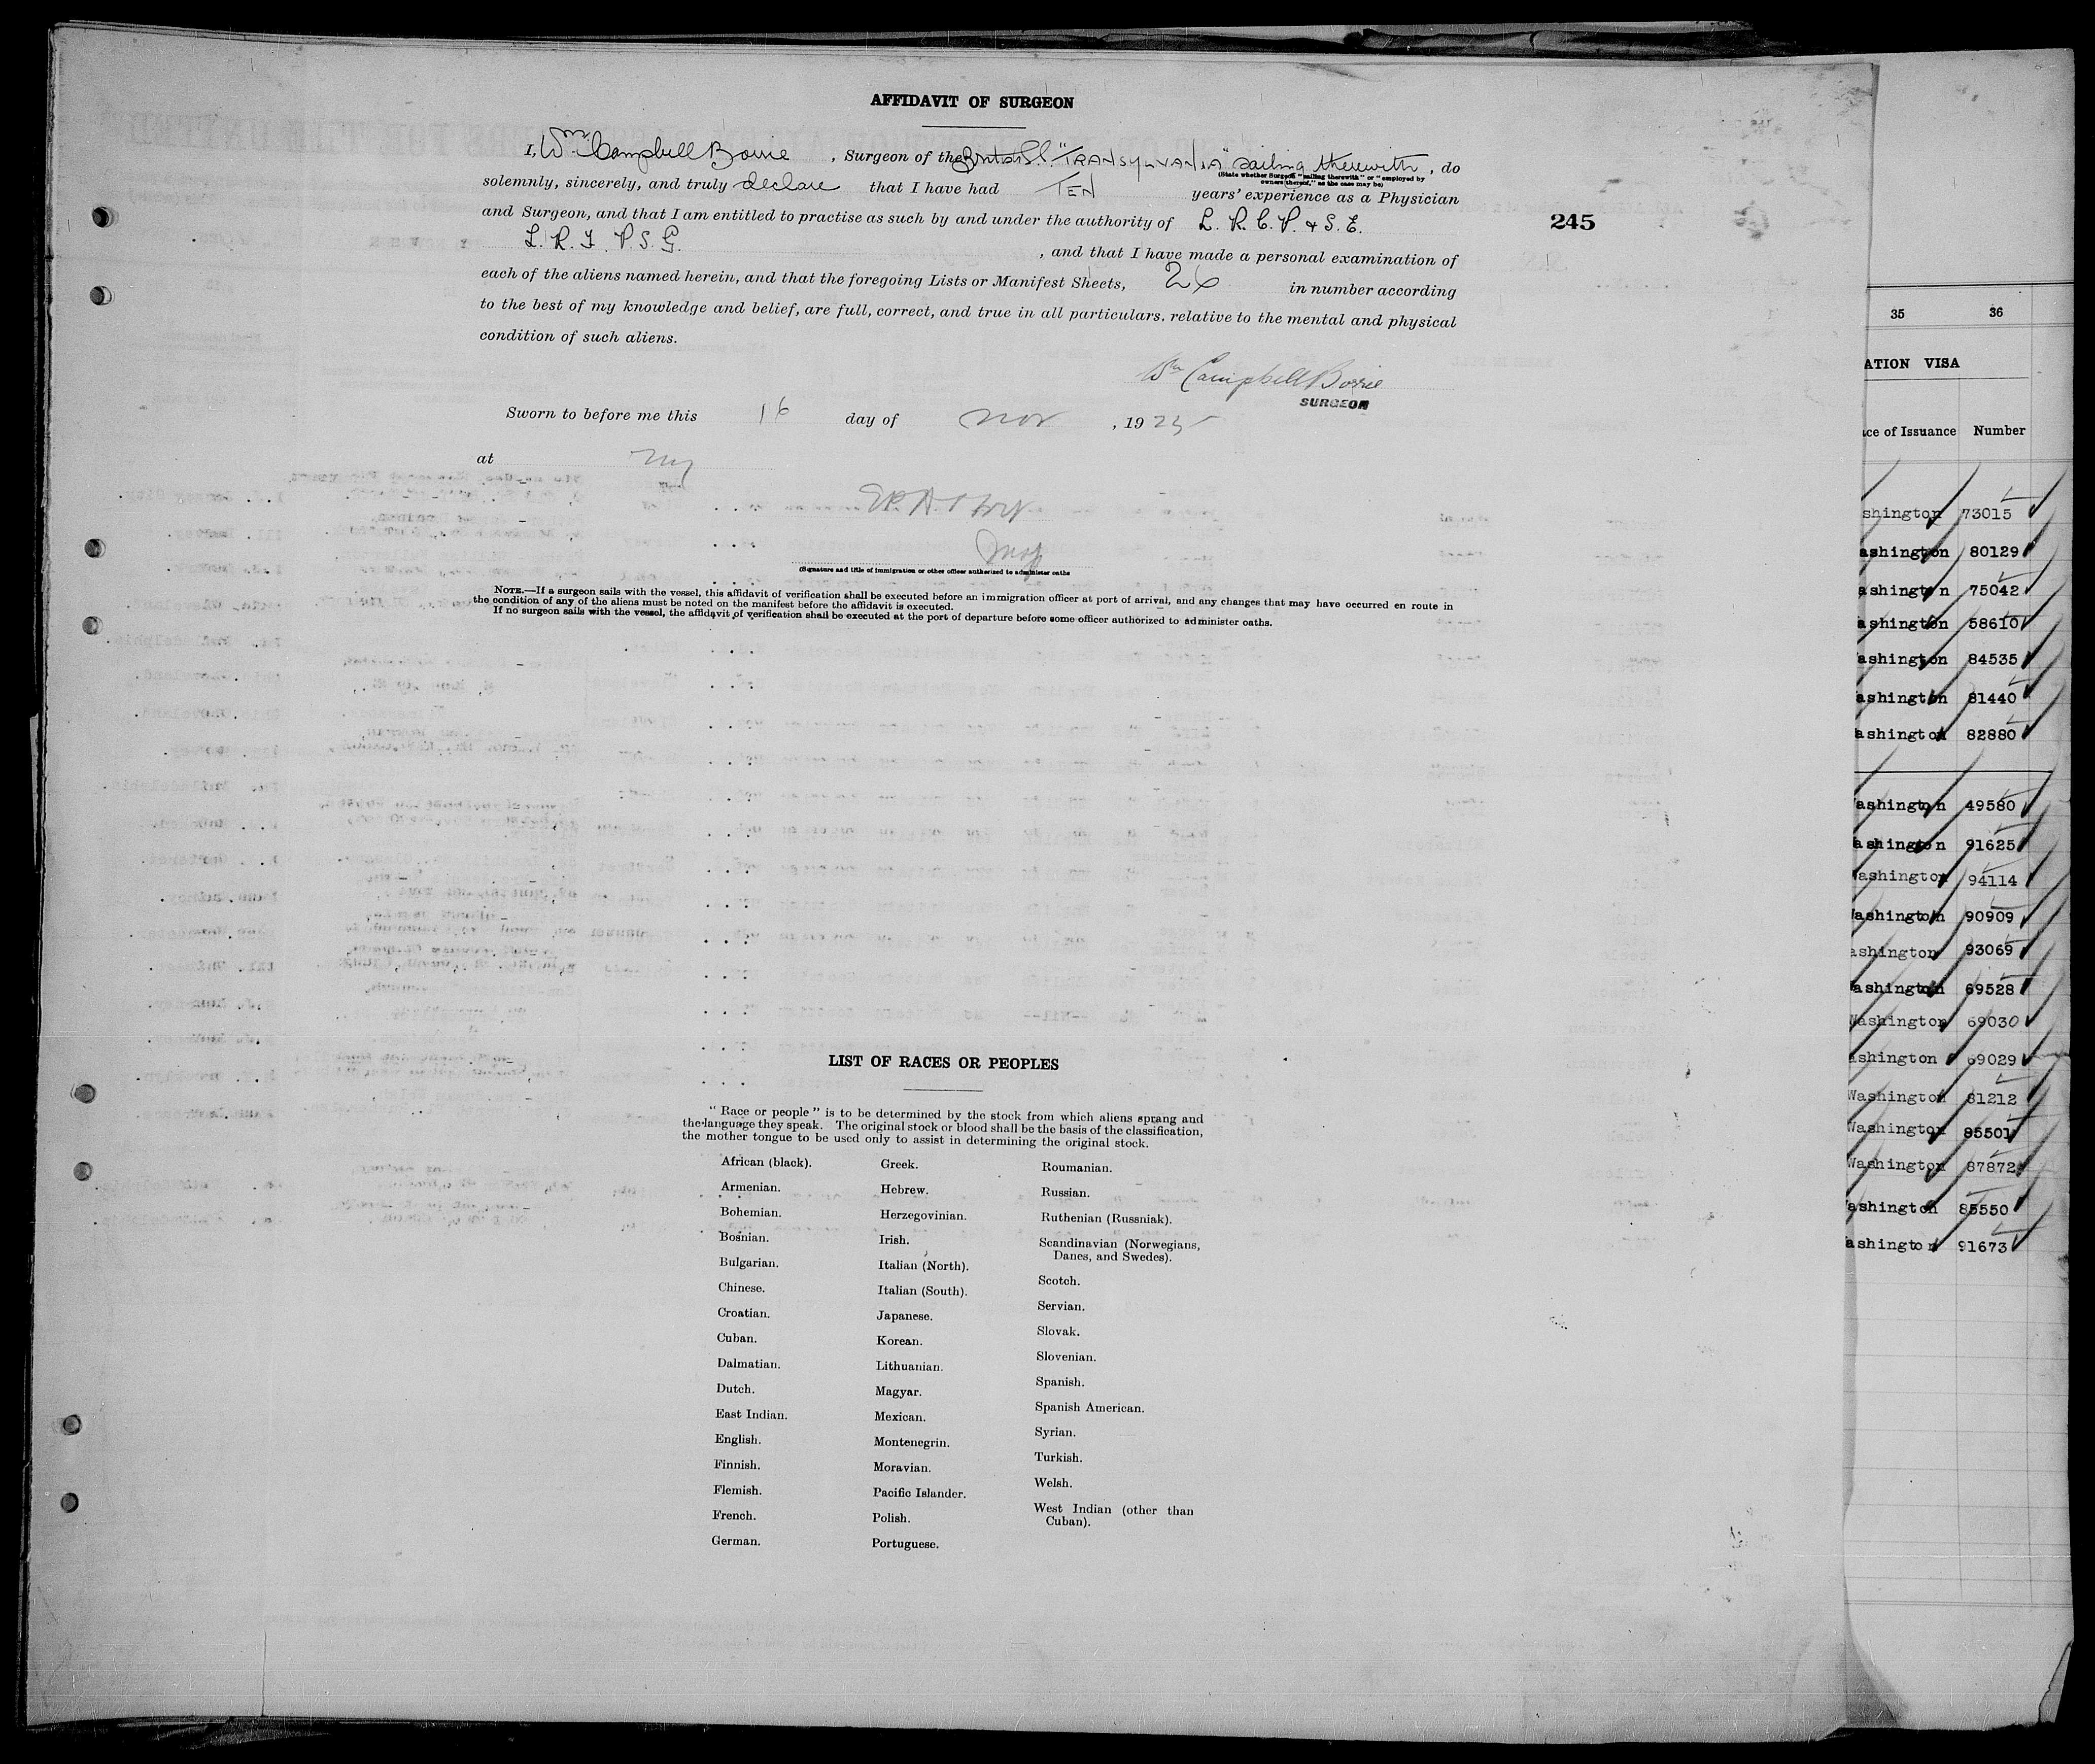 AFFIDAVIT OF SURGEON
I, Wm Campbell Borrie, Surgeon of the British S.S. "TRANSYLVANIA" sailing therewith, do
(State whether Surgeon "sailing therewith" or "employed by
owners thereof," as the case may be)
solemnly, sincerely, and truly declare that I have had TEN years' experience as a Physician
and Surgeon, and that I am entitled to practise as such by and under the authority of L. R. C. P. & S. E.
245
L. R. F. P. S. G. , and that I have made a personal examination of
each of the aliens named herein, and that the foregoing Lists or Manifest Sheets, 26 in number according
to the best of my knowledge and belief, are full, correct, and true in all particulars, relative to the mental and physical
condition of such aliens.
Wm Campbell Borrie
SURGEON
Sworn to before me this 16 day of Nov , 1925
at NY
(Signature and title of immigration or other officer authorized to administer oaths
NOTE.—If a surgeon sails with the vessel, this affidavit of verification shall be executed before an immigration officer at port of arrival, and any changes that may have occurred en route in
the condition of any of the aliens must be noted on the manifest before the affidavit is executed.
If no surgeon sails with the vessel, the affidavit of verification shall be executed at the port of departure before some officer authorized to administer oaths.
LIST OF RACES OR PEOPLES
"Race or people" is to be determined by the stock from which aliens sprang and
the language they speak. The original stock or blood shall be the basis of the classification,
the mother tongue to be used only to assist in determining the original stock.
African (black).
Armenian.
Bohemian.
Bosnian.
Bulgarian.
Chinese.
Croatian.
Cuban.
Dalmatian.
Dutch.
East Indian.
English.
Finnish.
Flemish.
French.
German.
Greek.
Hebrew.
Herzegovinian.
Irish.
Italian (North).
Italian (South).
Japanese.
Korean.
Lithuanian.
Magyar.
Mexican.
Montenegrin.
Moravian.
Pacific Islander.
Polish.
Portuguese.
Roumanian.
Russian.
Ruthenian (Russniak).
Scandinavian (Norwegians,
Danes, and Swedes).
Scotch.
Servian.
Slovak.
Slovenian.
Spanish.
Spanish American.
Syrian.
Turkish.
Welsh.
West Indian (other than
Cuban).
35 36
ATION VISA
ce of Issuance Number
shington 73015
ashington 80129
ashington 75042
ashington 58610
ashington 84535
ashington 81440
ashington 82880
ashington 49580
ashington 91625
Washington 94114
Washington 90909
ashington 93069
Washington 69528
Washington 69030
ashington 69029
Washington 81212
Washington 85501
Washington 87872
ashington 85550
ashington 91673